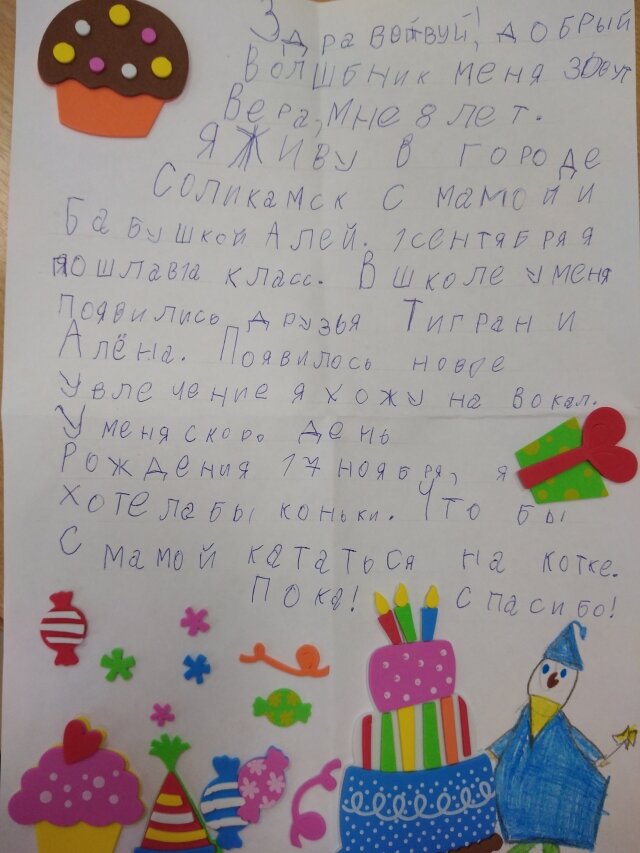 Здравствуй! добрый
Волшбник меня зовут
Вера, мне 8 лет.
Я Живу в городе
Соликамск с мамой и
Бабушкой Алей. 1 сентября я
пошла в 1а класс. В школе у меня
появились друзья Тигран и
Алёна. Появилось новое
увлечение я хожу на вокал.
У меня скоро день
Рождения 17 ноября, я
хотела бы коньки. Что бы
с мамой кататься на котке.
Пока! спасибо!